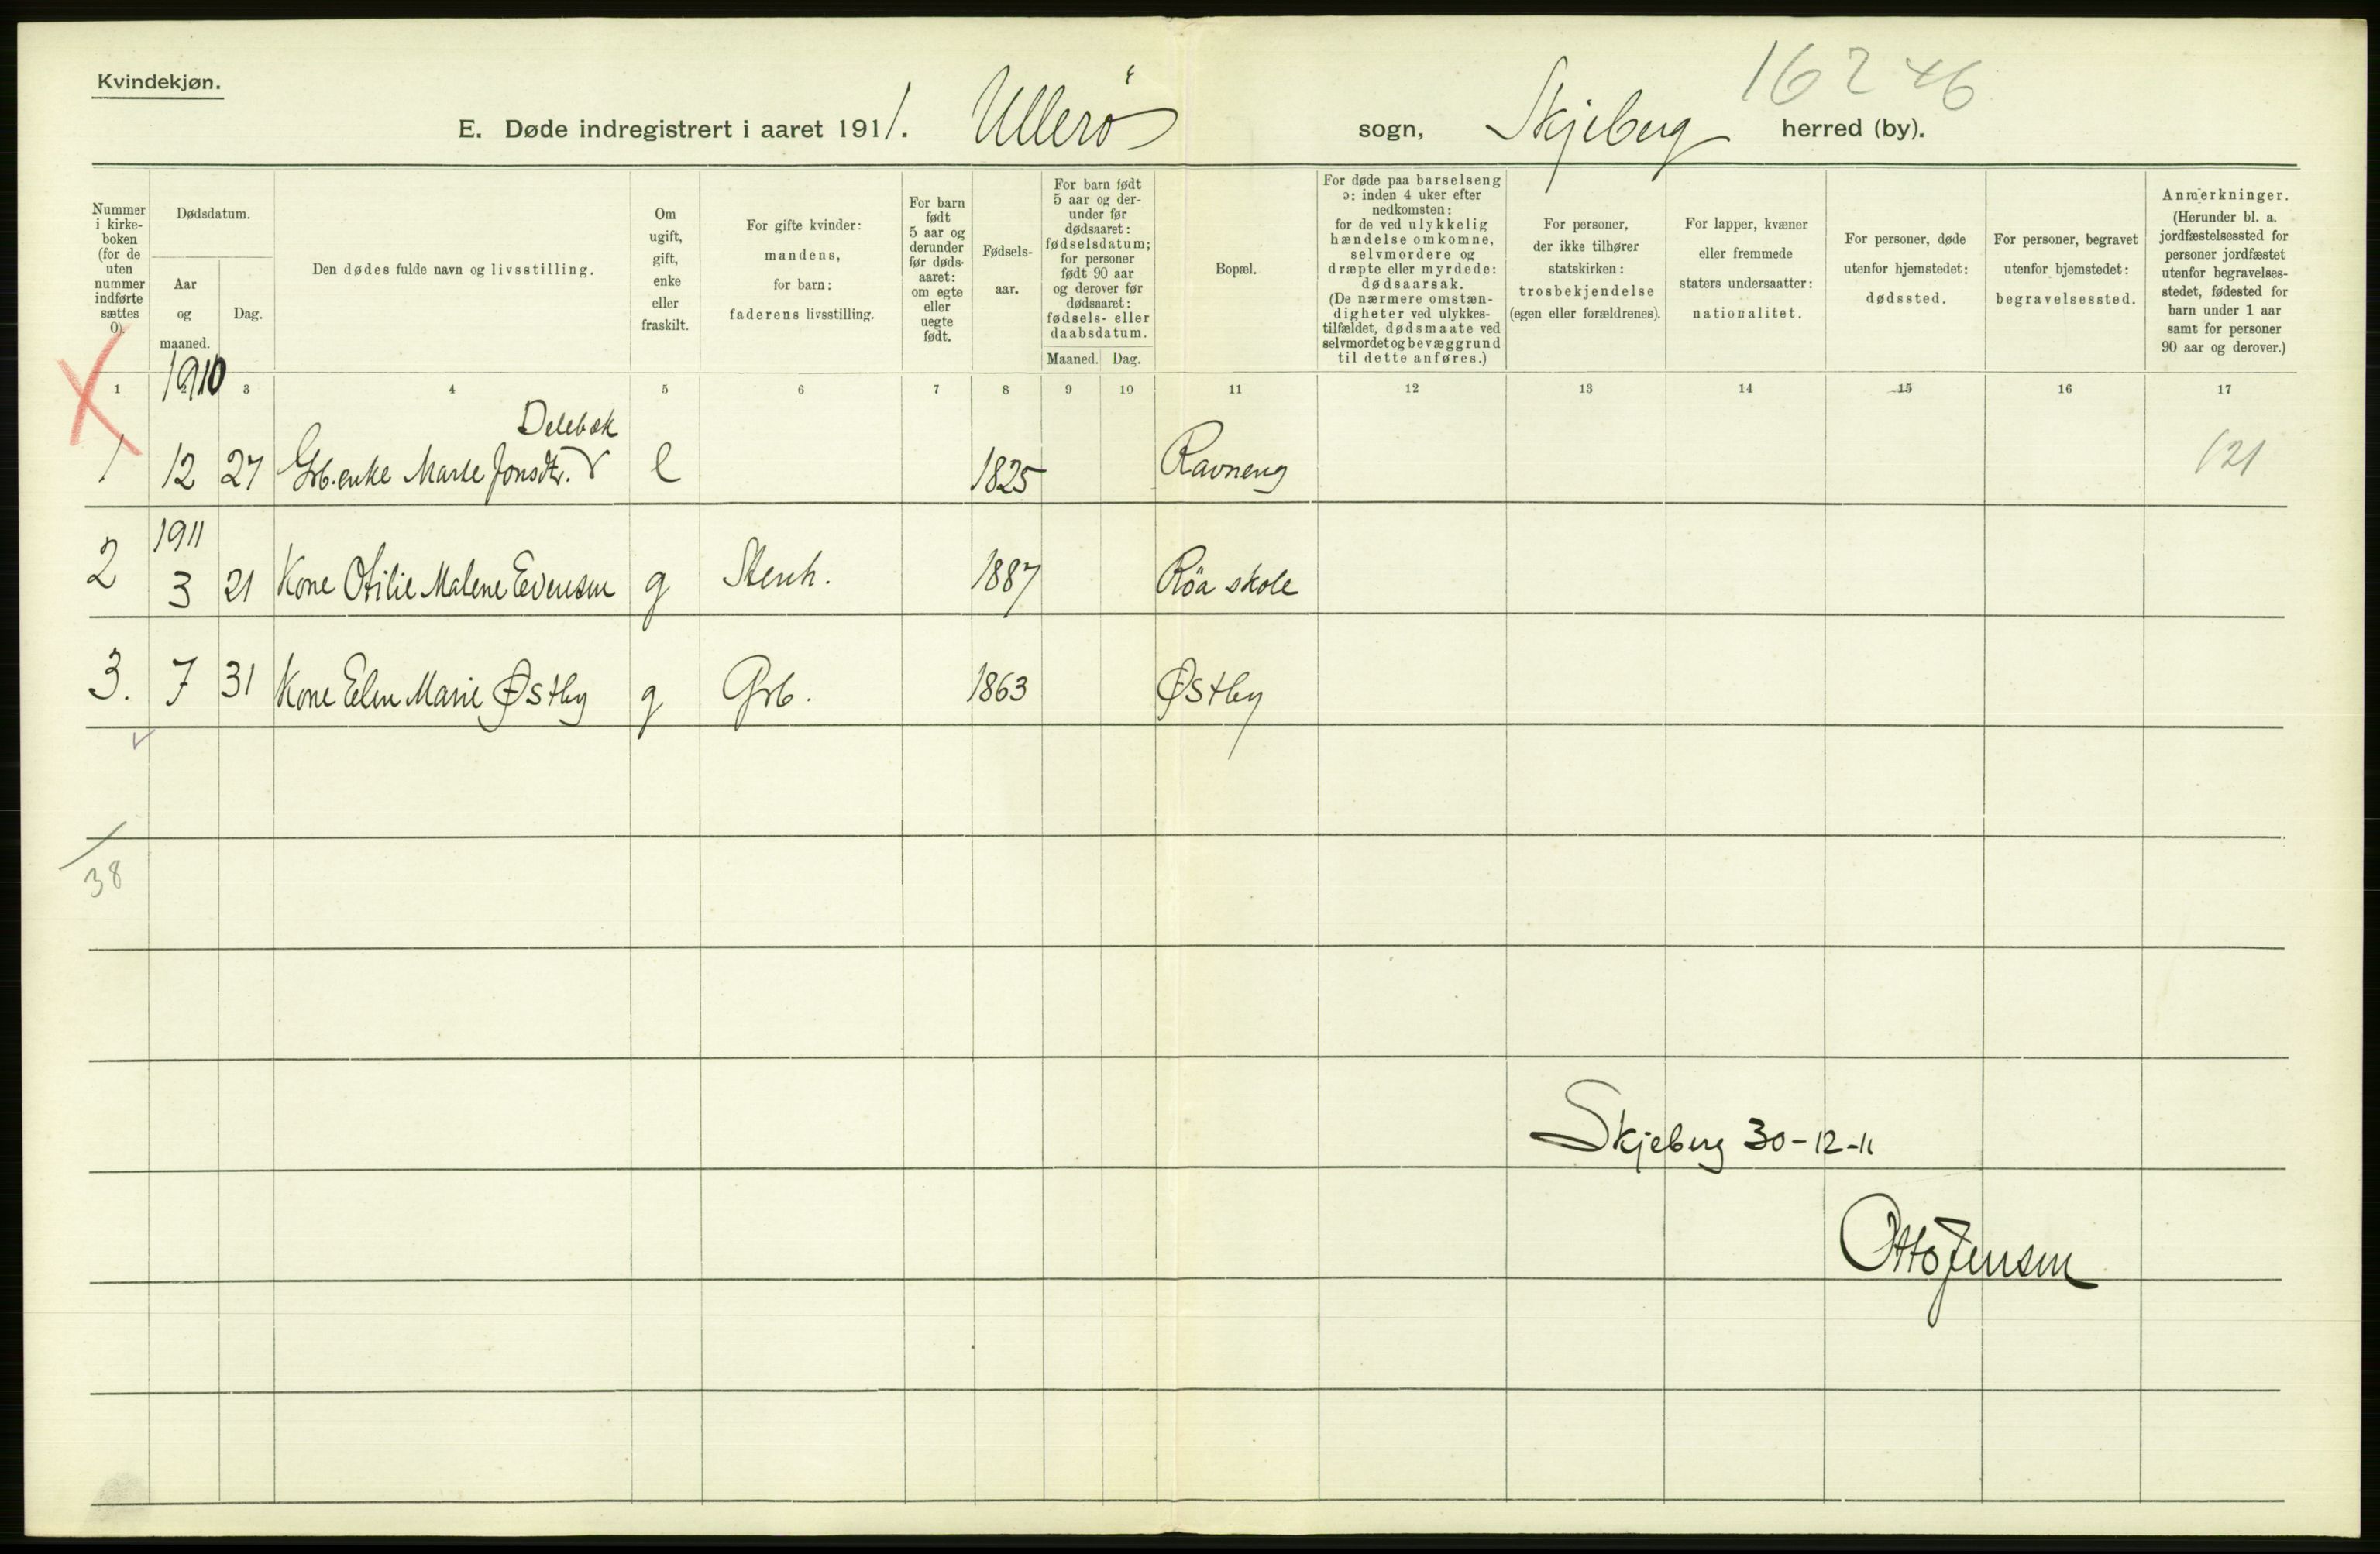 Kvindekjøn.
16246
E. Døde indregistrert i aaret 1911. Ullerø sogn, Skjeberg herred (by).
Nummer i kirke- boken (for de uten nummer indførte sættes 0).
Dødsdatum.
Aar og maaned.
Dag.
Den dødes fulde navn og livsstilling.
Om ugift, gift, enke eller fraskilt.
For gifte kvinder: mandens, for barn: faderens livsstilling.
For barn født 5 aar og derunder før døds- aaret: om egte eller uegte født.
Fødsels- aar.
For barn født 5 aar og der- under før dødsaaret: fødselsdatum; for personer født 90 aar og derover før dødsaaret: fødsels- eller daabsdatum.
Maaned. Dag.
Bopæl.
For døde paa barselseng ɔ: inden 4 uker efter nedkomsten: for de ved ulykkelig hændelse omkomne, selvmordere og dræpte eller myrdede: dødsaarsak. (De nærmere omstæn- digheter ved ulykkes- tilfældet, dødsmaate ved selvmordet og bevæggrund til dette anføres.)
For personer, der ikke tilhører statskirken: trosbekjendelse (egen eller forældrenes).
For lapper, kvæner eller fremmede staters undersaatter: nationalitet.
For personer, døde utenfor hjemstedet: dødssted.
For personer, begravet utenfor bjemstedet: begravelsessted.
Anmerkninger. (Herunder bl. a. jordfæstelsessted for personer jordfæstet utenfor begravelses- stedet, fødested for barn under 1 aar samt for personer 90 aar og derover.)
1 3 4 5 6 7 8 9 10 11 12 13 14 15 16 17
1910
Delebæk
1 12 27 Grb.enke Marte Jonsdtr. e 1825 Ravneng 121
1911
2 3 21 Kone Otilie Malene Evensen g Stenh. 1887 Röa skole
3. 7 31 Kone Elen Marie Østby g Grb. 1863 Østby
38
Skjeberg 30-12-11
Otto Jensen